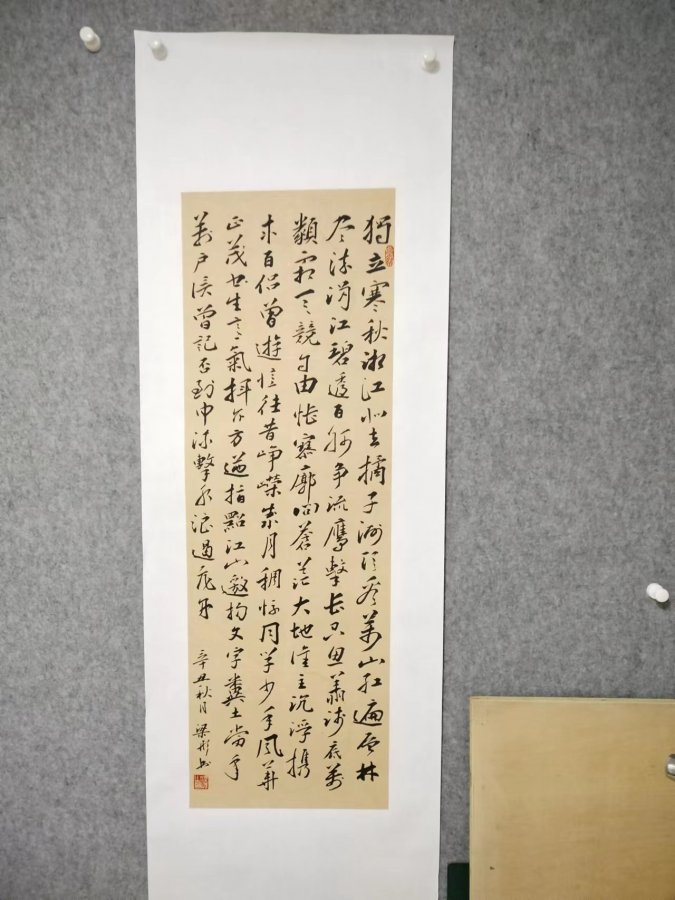 獨立寒秋湘江北去橘子洲頭看萬山紅遍层林
尽染漫江碧透百舸争流鷹擊長空魚翔浅底萬
類霜天競自由悵寥廓问蒼茫大地谁主沉浮携
来百侣曾遊憶往昔峥嵘歲月稠恰同学少年風華
正茂书生意氣揮斥方遒指點江山激扬文字糞土當年
萬户侯曾記否到中流擊水浪遏飛舟
辛丑秋月 梁 书